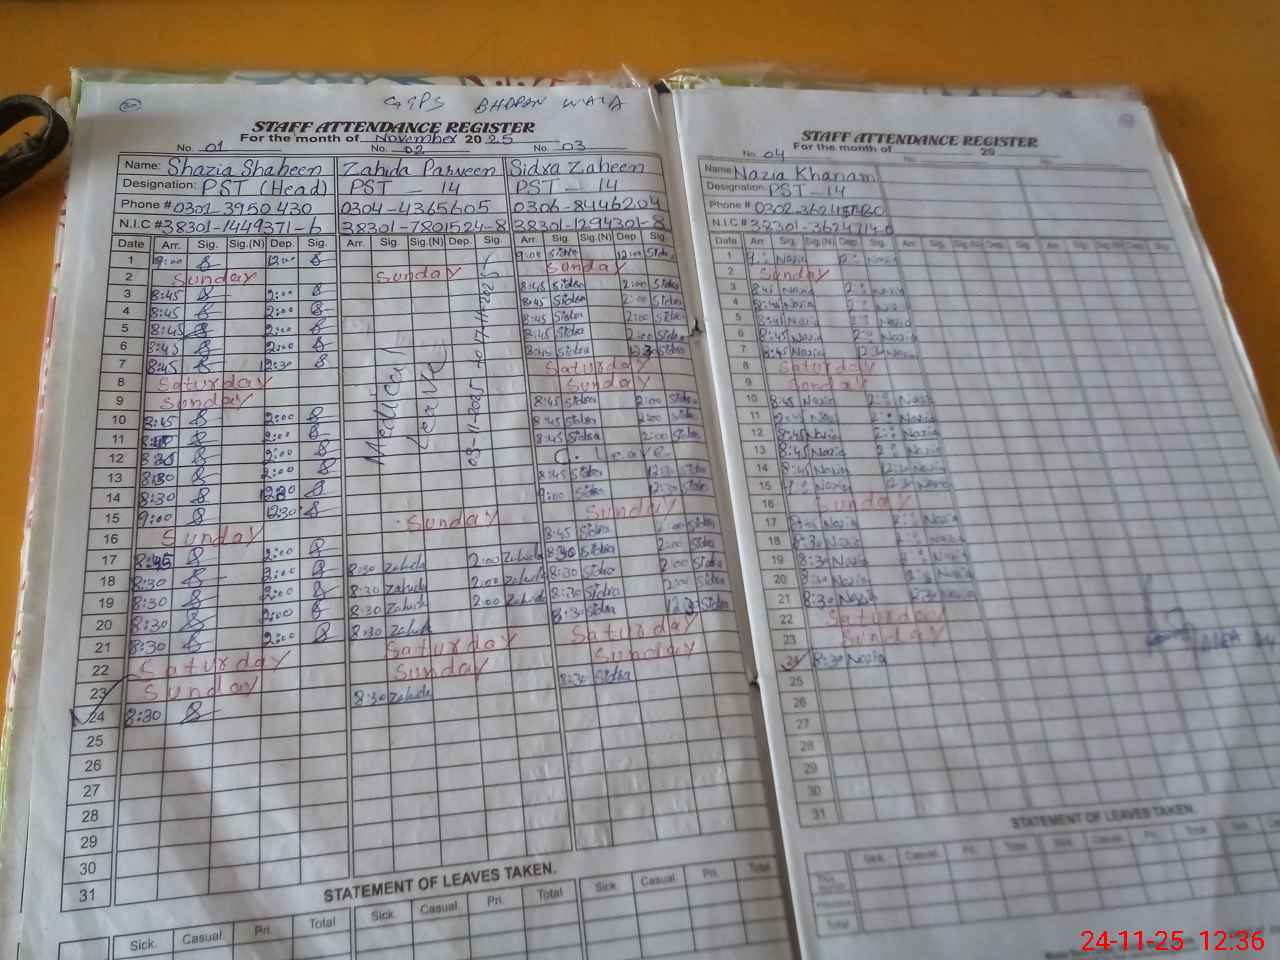 GGPS BHAPAN WALA
STAFF ATTENDANCE REGISTER
For the month of November 2025
No. 01 No. 02 No. 03
Name: Shazia Shaheen Zahida Parveen Sidra Zaheen
Designation: PST (Head) PST - 14 PST - 14
Phone # 0301-3950430 0304-4365605 0306-8446204
N.I.C # 38301-1449371-6 38301-7801524-8 38301-1294301-8
Date Arr. Sig. Sig.(N) Dep. Sig. Arr. Sig. Sig.(N) Dep. Sig. Arr. Sig. Sig.(N) Dep. Sig.
1 9:00 12:00 9:00 Sidra 12:00 Sidra
2 Sunday Sunday Sunday
3 8:45 2:00 8:45 Sidra 2:00 Sidra
4 8:45 2:00 8:45 Sidra 2:00 Sidra
5 8:45 2:00 8:45 Sidra 2:00 Sidra
6 8:45 2:00 8:45 Sidra 2:00 Sidra
7 8:45 12:30 8:45 Sidra Sidra
Medical Leave
8 Saturday Saturday
9 Sunday Sunday
10 8:45 2:00 8:45 Sidra 2:00 Sidra
11 2:00 8:45 Sidra 2:00 Sidra
12 2:00 8:45 Sidra 2:00 Sidra
13 8:30 2:00 C. Leave
14 8:30 12:30 8:45 Sidra 12:30 Sidra
15 9:00 12:30 9:00 Sidra 12:30 Sidra
16 Sunday Sunday Sunday
17 8:45 2:00 8:45 Sidra 2:00 Sidra
18 8:30 2:00 8:30 Zahida 2:00 Zahida 8:30 Sidra 2:00 Sidra
19 8:30 2:00 8:30 Zahida 2:00 Zahida 8:30 Sidra 2:00 Sidra
20 8:30 2:00 8:30 Zahida 2:00 Zahida 8:30 Sidra 2:00 Sidra
21 8:30 2:00 8:30 Zahida 8:30 Sidra Sidra
22 Saturday Saturday Saturday
23 Sunday Sunday Sunday
24 8:30 8:30 Zahida 8:30 Sidra
25
26
27
28
29
30
31
STATEMENT OF LEAVES TAKEN.
Sick. Casual. Pri. Total Sick. Casual. Pri. Total Sick. Casual. Pri. Total
STAFF ATTENDANCE REGISTER
For the month of 20
No. 04 No. No.
Name Nazia Khanam
Designation: PST - 14
Phone #
N.I.C # 38301-3624714-6
Date Arr. Sig. Sig.(N) Dep. Sig. Arr. Sig. Sig.(N) Dep. Sig.
1 Nazia Nazia
2 Sunday
3 8:45 Nazia Nazia
4 8:45 Nazia Nazia
5 8:45 Nazia Nazia
6 8:45 Nazia Nazia
7 8:45 Nazia Nazia
8 Saturday
9 Sunday
10 8:45 Nazia Nazia
11 Nazia
12 8:45 Nazia Nazia
13 8:45 Nazia Nazia
14 8:45 Nazia Nazia
15 Nazia Nazia
16 Sunday
17 Nazia Nazia
18 8:30 Nazia Nazia
19 8:30 Nazia Nazia
20 8:30 Nazia Nazia
21 8:30 Nazia Nazia
22 Saturday
23 Sunday
24 8:30 Nazia
25
26
27
28
29
30
31
STATEMENT OF LEAVES TAKEN.
Sick. Casual. Pri. Total Sick. Casual. Pri. Total Sick.
Total
24-11-25 12:36